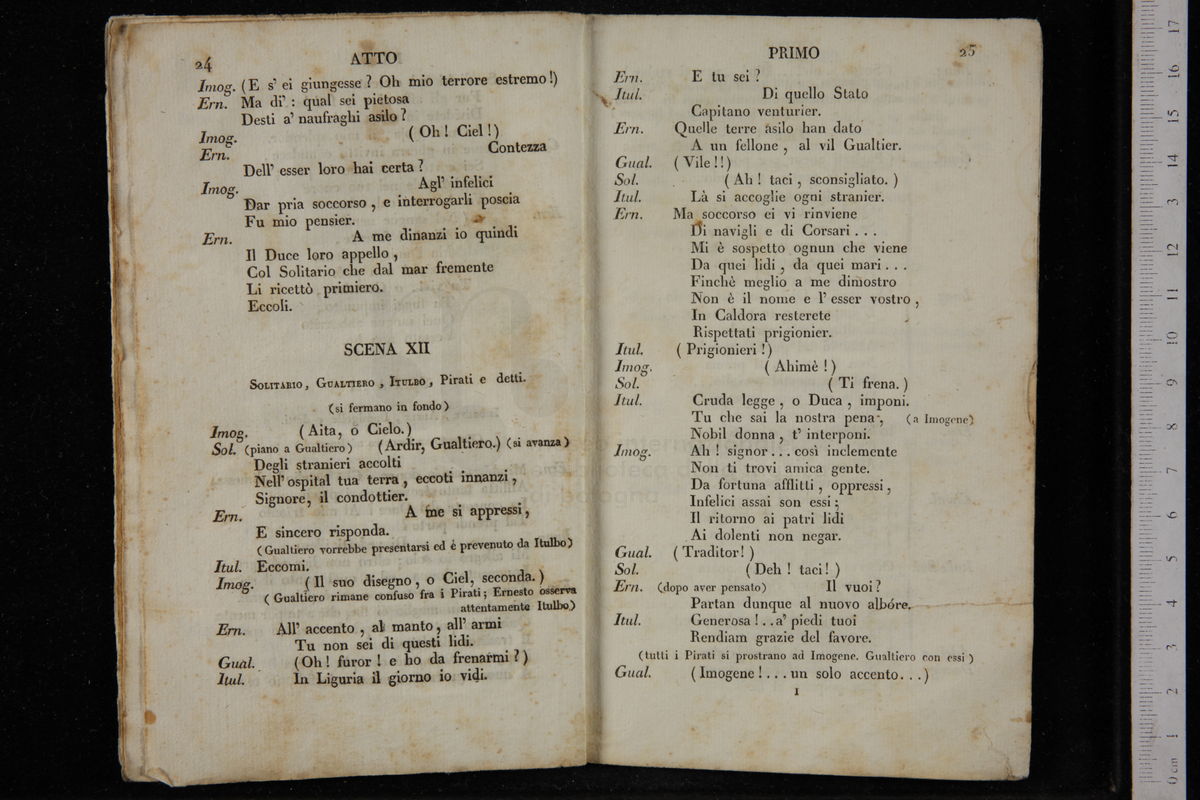 24
ATTO
Imog. (E s' ei giungesse ? Oh mio terrore estremo!)
Ern. Ma di' : qual sei pietosa
Desti a' naufraghi asilo ?
Imog. ( Oh ! Ciel ! )
Ern. Contezza
Dell' esser loro hai certa ?
Imog. Agl' infelici
Dar pria soccorso , e interrogarli poscia
Fu mio pensier.
Ern. A me dinanzi io quindi
Il Duce loro appello ,
Col Solitario che dal mar fremente
Li ricettò primiero.
Eccoli.
SCENA XII
SOLITARIO, GUALTIERO , ITULBO, Pirati e detti.
(si fermano in fondo)
Imog. (Aita, o Cielo.)
Sol. (piano a Gualtiero) (Ardir, Gualtiero.) (si avanza)
Degli stranieri accolti
Nell' ospital tua terra , eccoti innanzi ,
Signore, il condottier.
Ern. A me si appressi ,
E sincero risponda.
(Gualtiero vorrebbe presentarsi ed è prevenuto da Itulbo)
Itul. Eccomi.
Imog. (Il suo disegno, o Ciel, seconda. )
( Gualtiero rimane confuso fra i Pirati; Ernesto osserva
attentamente Itulbo.)
Ern. All' accento , al manto, all' armi
Tu non sei di questi lidi.
Gual. (Oh! furor ! e ho da frenarmi ? )
Itul. In Liguria il giorno io vidi.
PRIMO
25
Ern. E tu sei ?
Itul. Di quello Stato
Capitano venturier.
Ern. Quelle terre asilo han dato
A un fellone , al vil Gualtier.
Gual. ( Vile !! )
Sol. ( Ah ! taci , sconsigliato. )
Itul. Là si accoglie ogni stranier.
Ern. Ma soccorso ei vi rinviene
Di navigli e di Corsari . . .
Mi è sospetto ognun che viene
Da quei lidi , da quei mari . . .
Finchè meglio a me dimostro
Non è il nome e l' esser vostro ,
In Caldora resterete
Rispettati prigionier.
Itul. ( Prigionieri ! )
Imog. ( Ahimè ! )
Sol. ( Ti frena. )
Itul. Cruda legge , o Duca , imponi.
Tu che sai la nostra pena , (a Imogene)
Nobil donna , t' interponi.
Imog. Ah ! signor . . . così inclemente
Non ti trovi amica gente.
Da fortuna afflitti , oppressi ,
Infelici assai son essi ;
Il ritorno ai patri lidi
Ai dolenti non negar.
Gual. ( Traditor! )
Sol. ( Deh ! taci! )
Ern. (dopo aver pensato) Il vuoi ?
Partan dunque al nuovo albóre.
Itul. Generosa ! . . a' piedi tuoi
Rendiam grazie del favore.
(tutti i Pirati si prostrano ad Imogene. Gualtiero con essi )
Gual. ( Imogene ! . . . un solo accento. . . )
1